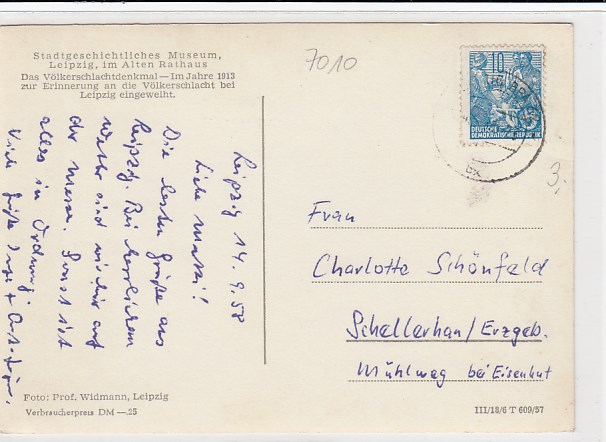 Stadtgeschichtliches Museum,
Leipzig, im Alten Rathaus
Das Völkerschlachtdenkmal—Im Jahre 1913
zur Erinnerung an die Völkerschlacht bei
Leipzig eingeweiht.
7010
10
DEUTSCHE
DEMOKRATISCHE REPUBLIK
bx
3,-
Leipzig 14.9.58
Liebe Mutti!
Die besten Grüße aus
Leipzig. Bei herrlichem
Wetter sind wir hier auf
der Messe. Sonst ist
alles in Ordnung.
Viele Grüße
Frau
Charlotte Schönfeld
Schellerhau/Erzgeb.
Mühlweg bei Eisenhut
Foto: Prof. Widmann, Leipzig
Verbraucherpreis DM —.25
III/18/6 T 609/57